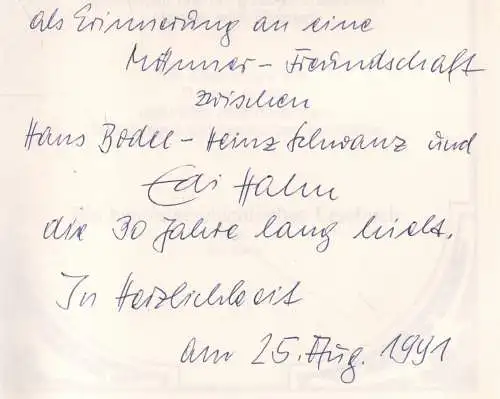 als Erinnerung an eine
Männer - Freundschaft
zwischen
Hans Bodee - Heinz Schwanz und
Edi Hahn
die 30 Jahre lang hielt.
In Herzlichkeit
am 25. Aug. 1991